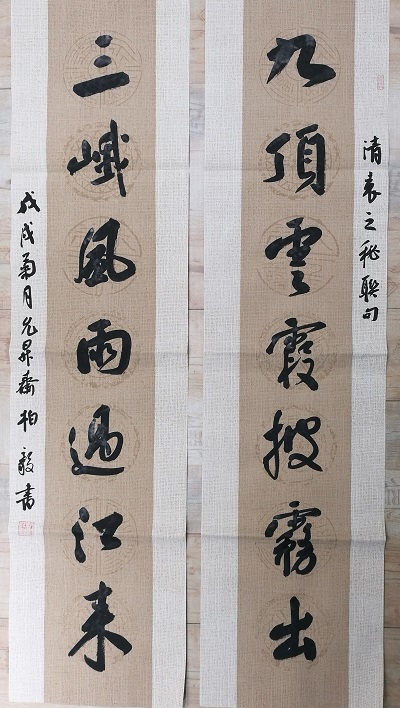 清袁之秘聯句
九頂雲霞披霧出
三峨風雨過江来
戊戌菊月允昇齋柏毅書